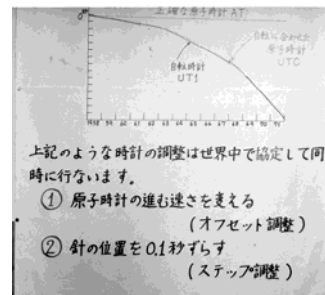 正確な原子時計 AT
自転に合わせた
原子時計
UTC
自転時計
UT1
上記のような時計の調整は世界中で協定して同
時に行ないます。
① 原子時計の進む速さを変える
(オフセット調整)
② 針の位置を0.1秒ずらす
(ステップ調整)